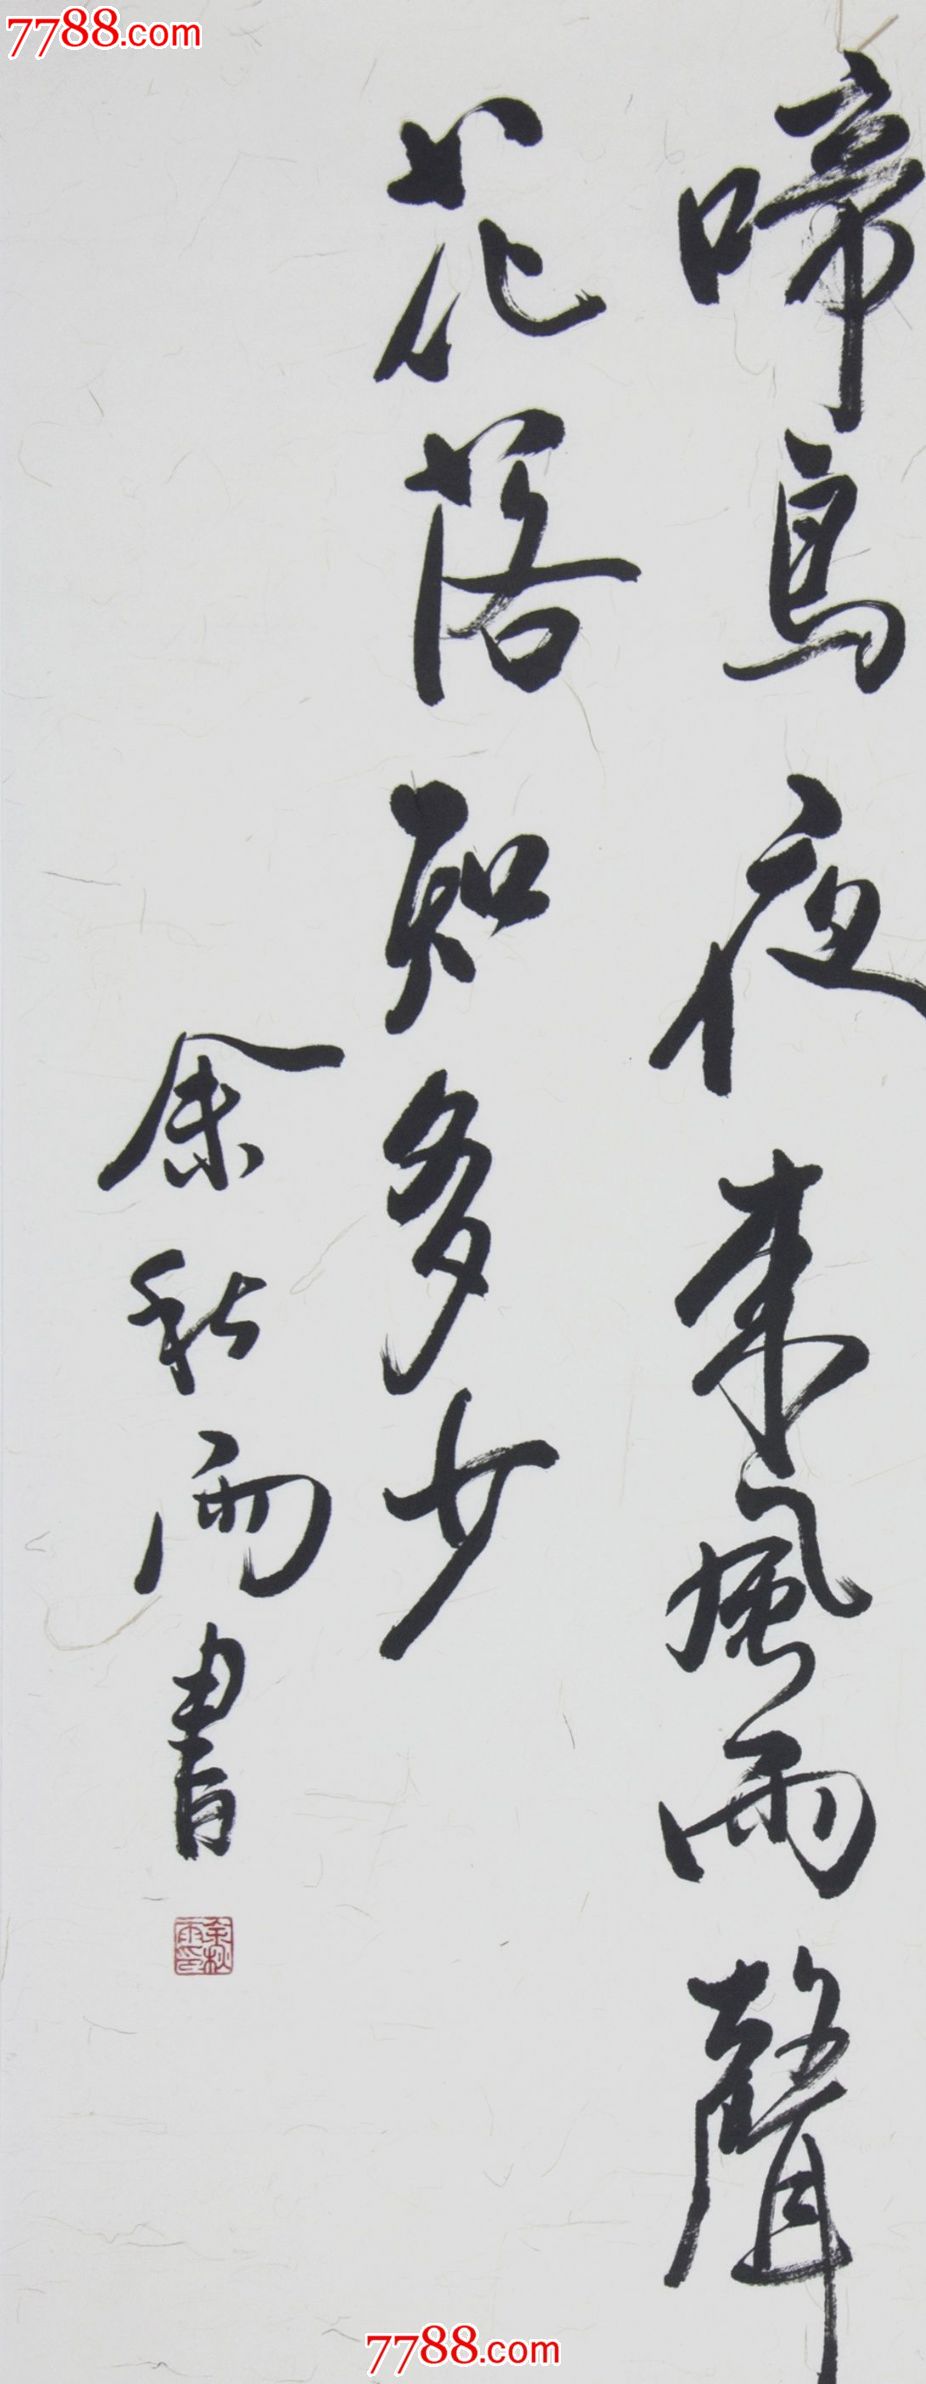 7788.com
啼鳥夜来風雨聲
花落知多少
余秋雨書
余秋雨印
7788.com